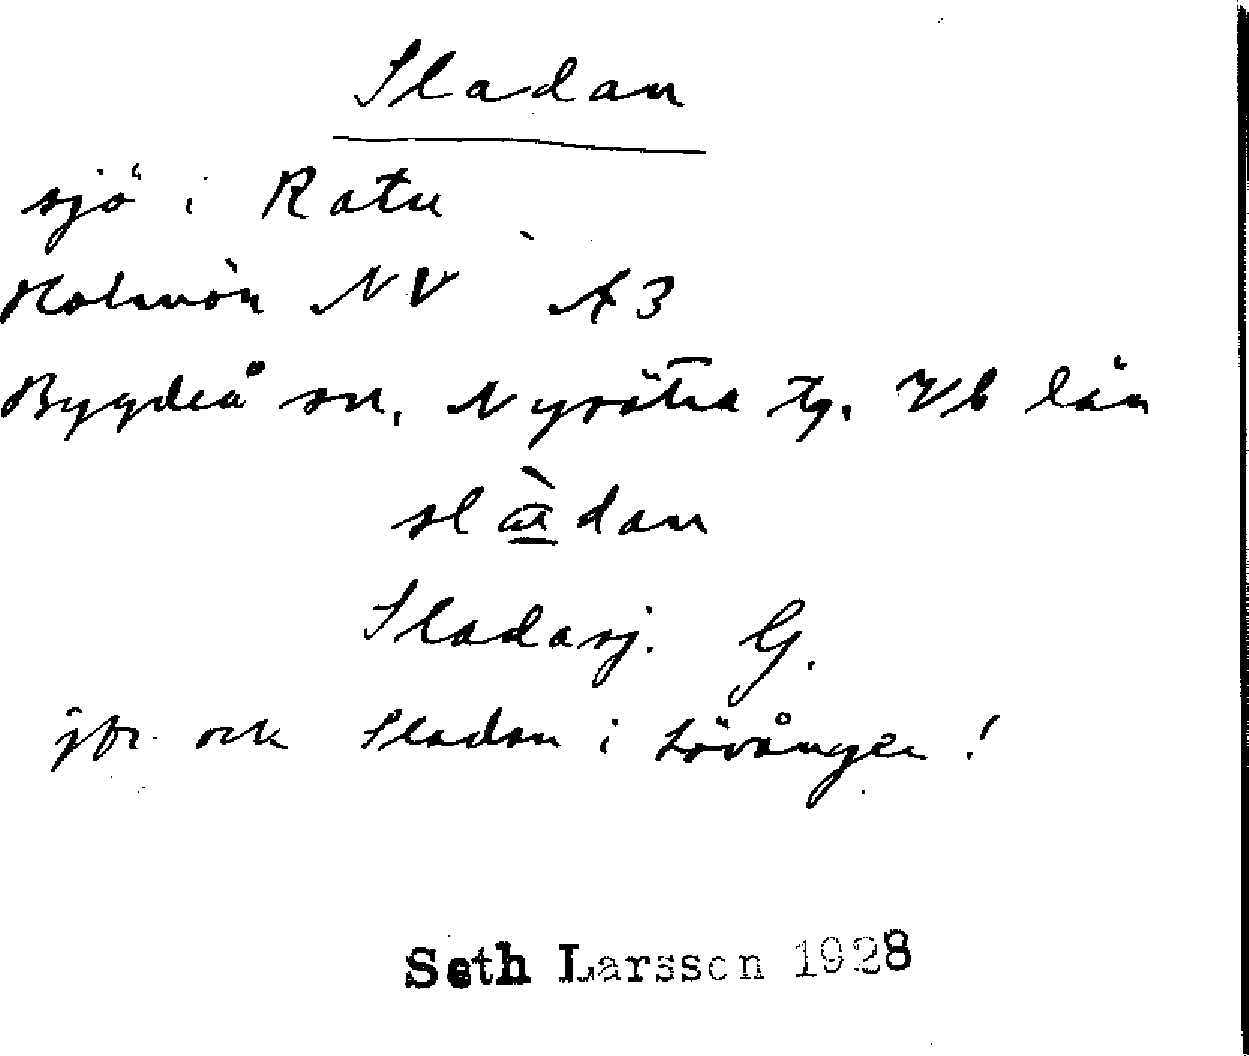 Sladan
sjö i Ratu
Holmön NV A3
Bygdeå sn, Nysätra tg. Vb län
slàdan
Sladasj. G.
jfr ock Sladan i Lövånger!
Seth Larsson 1928